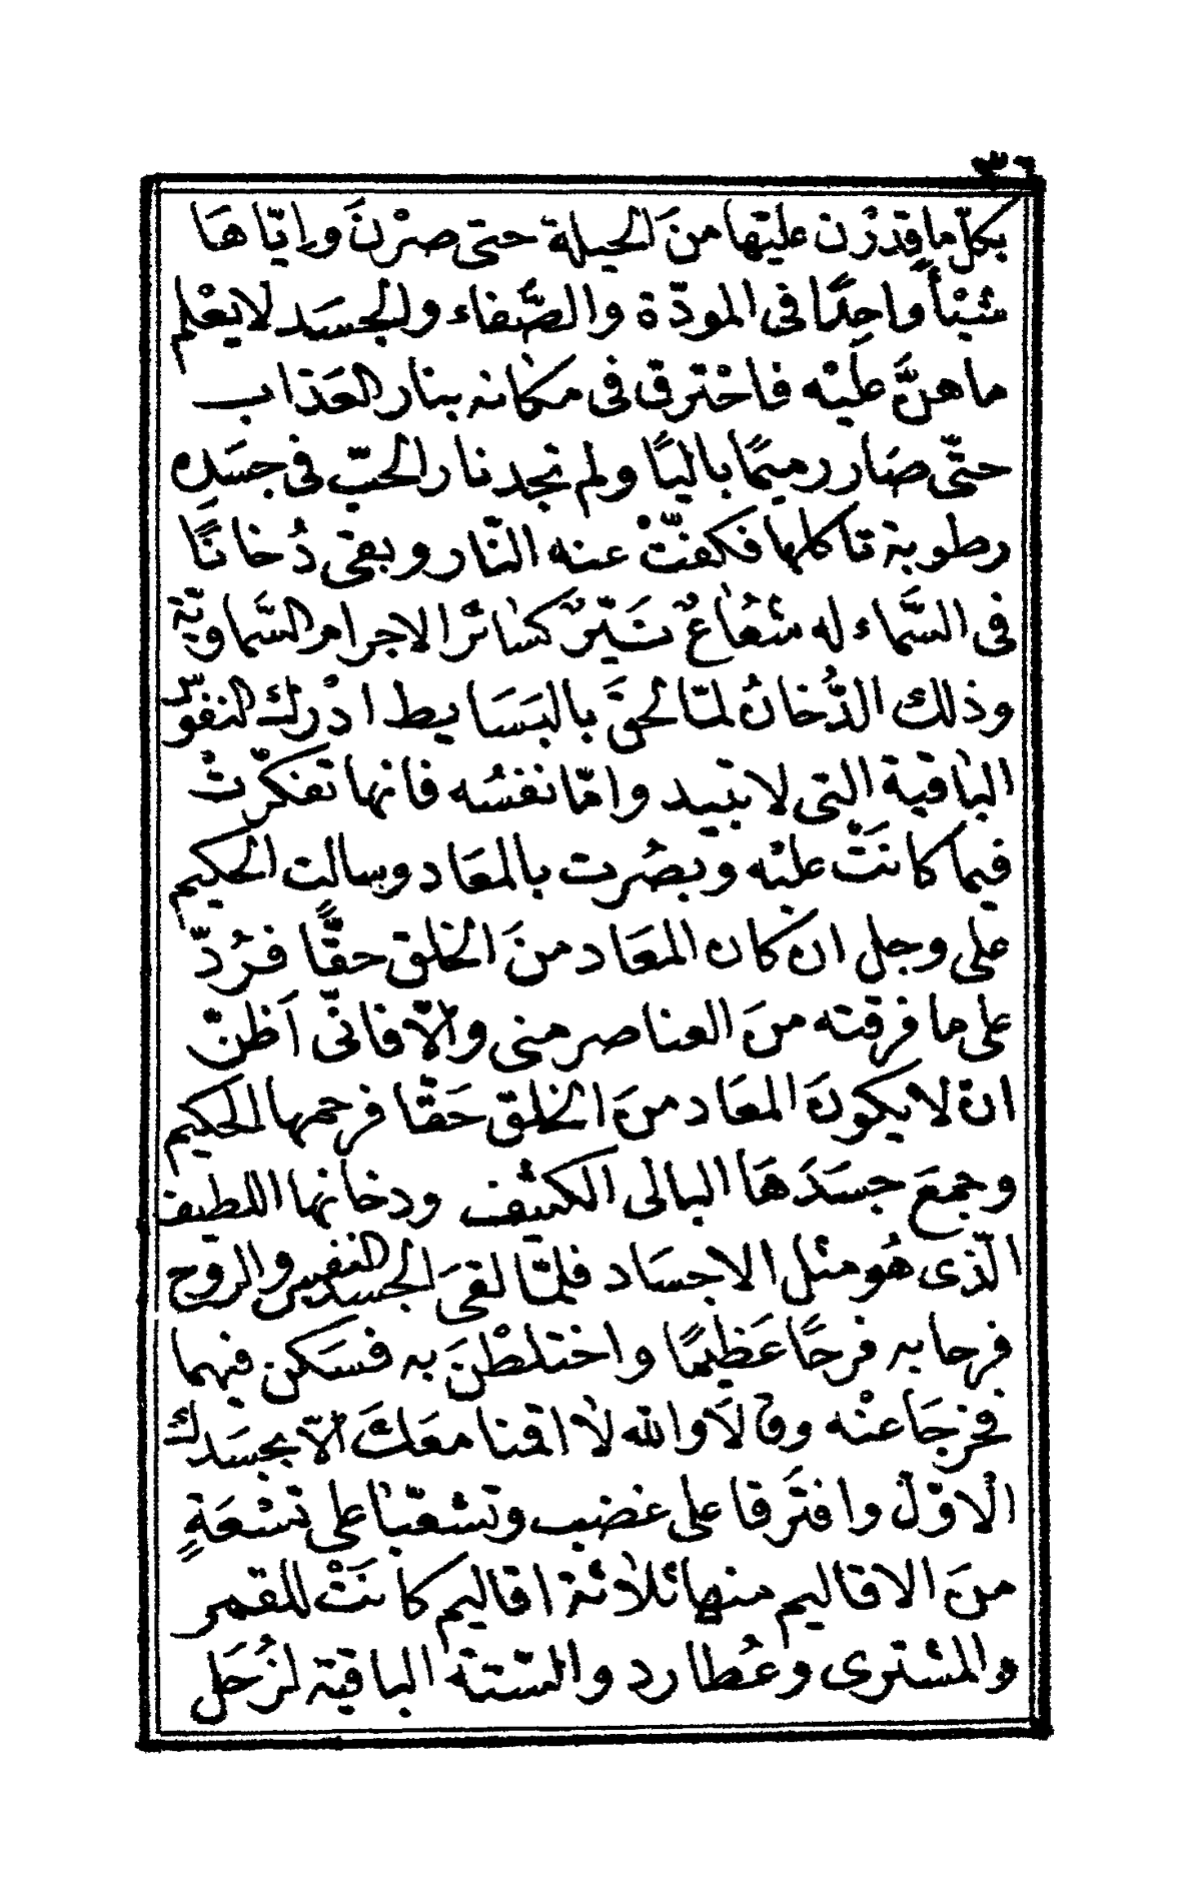 ٣٦
بكلّ ما قدرْن عليها منَ الحيلة حتى صرْنَ وايّاها
شيْأً واحِدًا فى المودّة والصَّفاء والجسَد لا يعْلم
ما هنَّ عليْه فاحْترق فى مكانه بنار العَذاب
حتّى صَار رميمًا باليًا ولم تجد نار الحبّ فى جسَدِه
رطوبة تاكلها فكفتّْ عنه النّار وبقى دُخانًا
فى السَّماء له شعُاعٌ نَيّرٌ كسَائر الاجرام السَّماوية
وذلك الدُّخانُ لمّا لحقَ بالبَسَايط ادْرك النفوس
الباقية التى لا تبيد وامّا نفسُه فانها تفكرّتْ
فيما كانَتْ عليْه وبصُرت بالمعَاد وسالت الحكيم
على وجل ان كان المعَاد منَ الخلق حقًّا فرُدّ
على ما فرقته منَ العناصر منى والّا فانّى اَظنّ
ان لا يكونَ المعَاد منَ الخلق حَقّا فرحمها الحكيم
وجمعَ جسَدَهَا البالى الكثيف ودخانها اللطيف
الّذى هُو مثل الاجسَاد فلمّا لقىَ الجسد النفس والروح
فرحا به فرحًا عَظيمًا واختلطْنَ به فسَكن فيهما
فخرجَا عنْه وقالَا والله لا اقمنا معَكَ الّا بجسَدك
الاوّل وافتَرقا على غضب وتشعّبا على تسْعَةٍ
منَ الاقاليم منها ثلاثة اقاليم كانَتْ للقمر
والمشْترى وعُطارد والستة الباقية لزُحَل